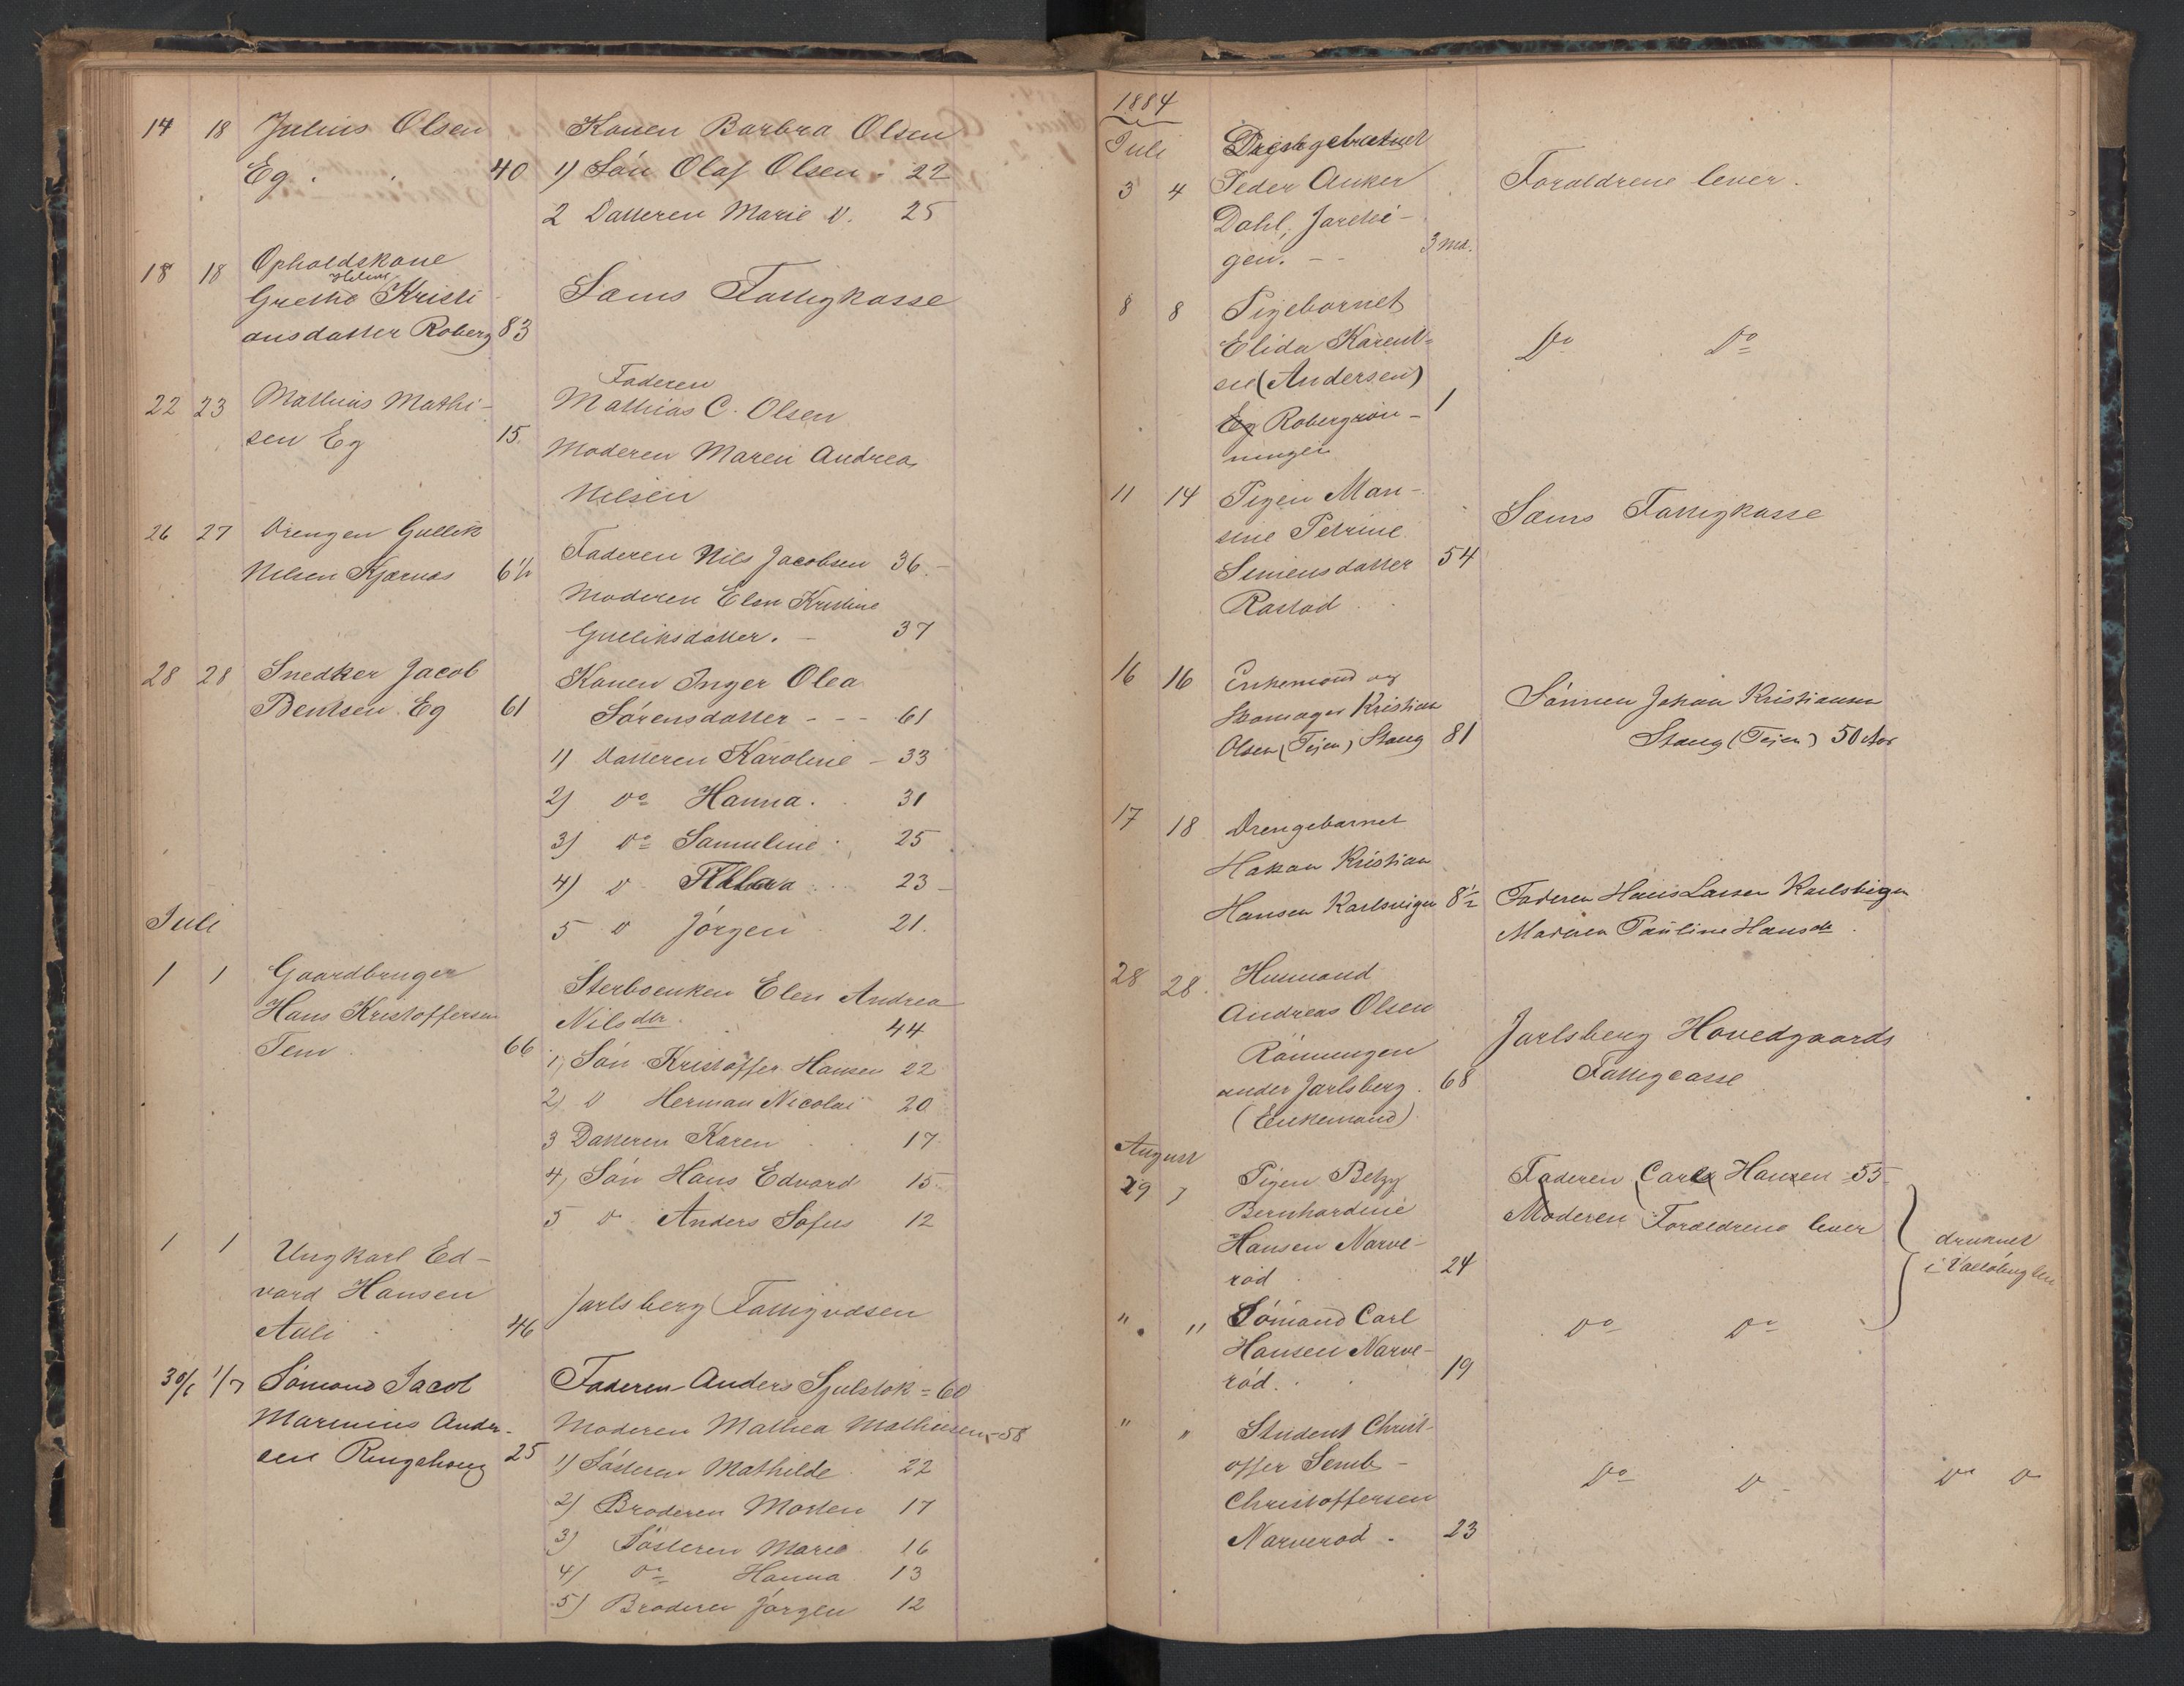 14 18 Julius Olsen
Eg 40
Konen Barbra Olsen
1) Søn Olaf Olsen 22
2 Datteren Marie D. 25
18 18 Opholdskone
Helene
Grethe Kristi
ansdatter Roberg 83
Sems Fattigkasse
22 23 Mathias Mathi-
sen Eg 15.
Faderen
Mathias C. Olsen
Moderen Maren Andrea
Nilsen
26 27 Drengen Gullik
Nilsen Kjærnæs 6 1/2
Faderen Nils Jacobsen 36.
Moderen Elen Kristine
Gulliksdatter. - 37
28 28 Snedker Jacob
Bentsen. Eg 61
Konen Inger Olea
Sørensdatter - - - 61
1) Datteren Karoline - 33
2) Do Hanna. 31
3) Do Samuline 25
4) D 23
5 D Jørgen 21.
Juli
1 1 Gaardbruger
Hans Kristoffersen
Tem 66
Sterboenken Elen Andrea
Nilsdtr. 44
1) Søn Kristoffer Hansen 22
2) D Herman Nicolai 20
3 Datteren Karen 17
4) Søn Hans Edvard 15
5 D Anders Sofus 12
1 1 Ungkarl Ed-
vard Hansen
Auli 46
Jarlsberg Fattigvæsen
30/6 1/7 Sømand Jacob
Marinius Ander-
sen Ringshoug 25
Faderen Anders Sjulstok = 60
Moderen Mathea Mathiesen - 58
1) Søsteren Mathilde 22
2) Broderen Morten 17
3) Søsteren Marie 16
4) Do Hanna 13
5) Broderen Jørgen 12
1884
Juli
3 4 Peder Anker
Dahl, Jarethe-
gen. - - 3 Md.
Forældrene lever.
8 8 Pigebarnet
Elida Karent-
sen (Andersen)
Eg Robergrøn- 1
ningen
Do Do
11 14 Pigen Mari-
sine Petrine
Simensdatter 54
Rastad
Sems Fattigkasse
16 16 Enkemand og
Skomager Kristian
Olsen (Tejen) Stang 81
Sønnen Johan Kristiansen
Stang (Tejen) 50 Aar
17 18 Drengebarnet
Hakan Kristian
Hansen Karlsvigen 8 1/2
Faderen Hans Larsen Karlsvigen
Moderen Pauline Hansdtr.
28 28. Husmand
Andreas Olsen
Rønningen
under Jarlsberg. 68
(Enkemand)
Jarlsberg Hovedgaards
Fattigcasse
August
29 Pigen Betzy
Bernhardine
Hansen Narve-
rød 24
Faderen (Carl) Hansen 55
Moderen Forældrene lever
druknet
i Valløbugten
" " Sømand Carl
Hansen Narve-
rød. 19
Do Do
" " Student Christ-
offer Semb-
Christoffersen
Narverød - 23
Do D Do D